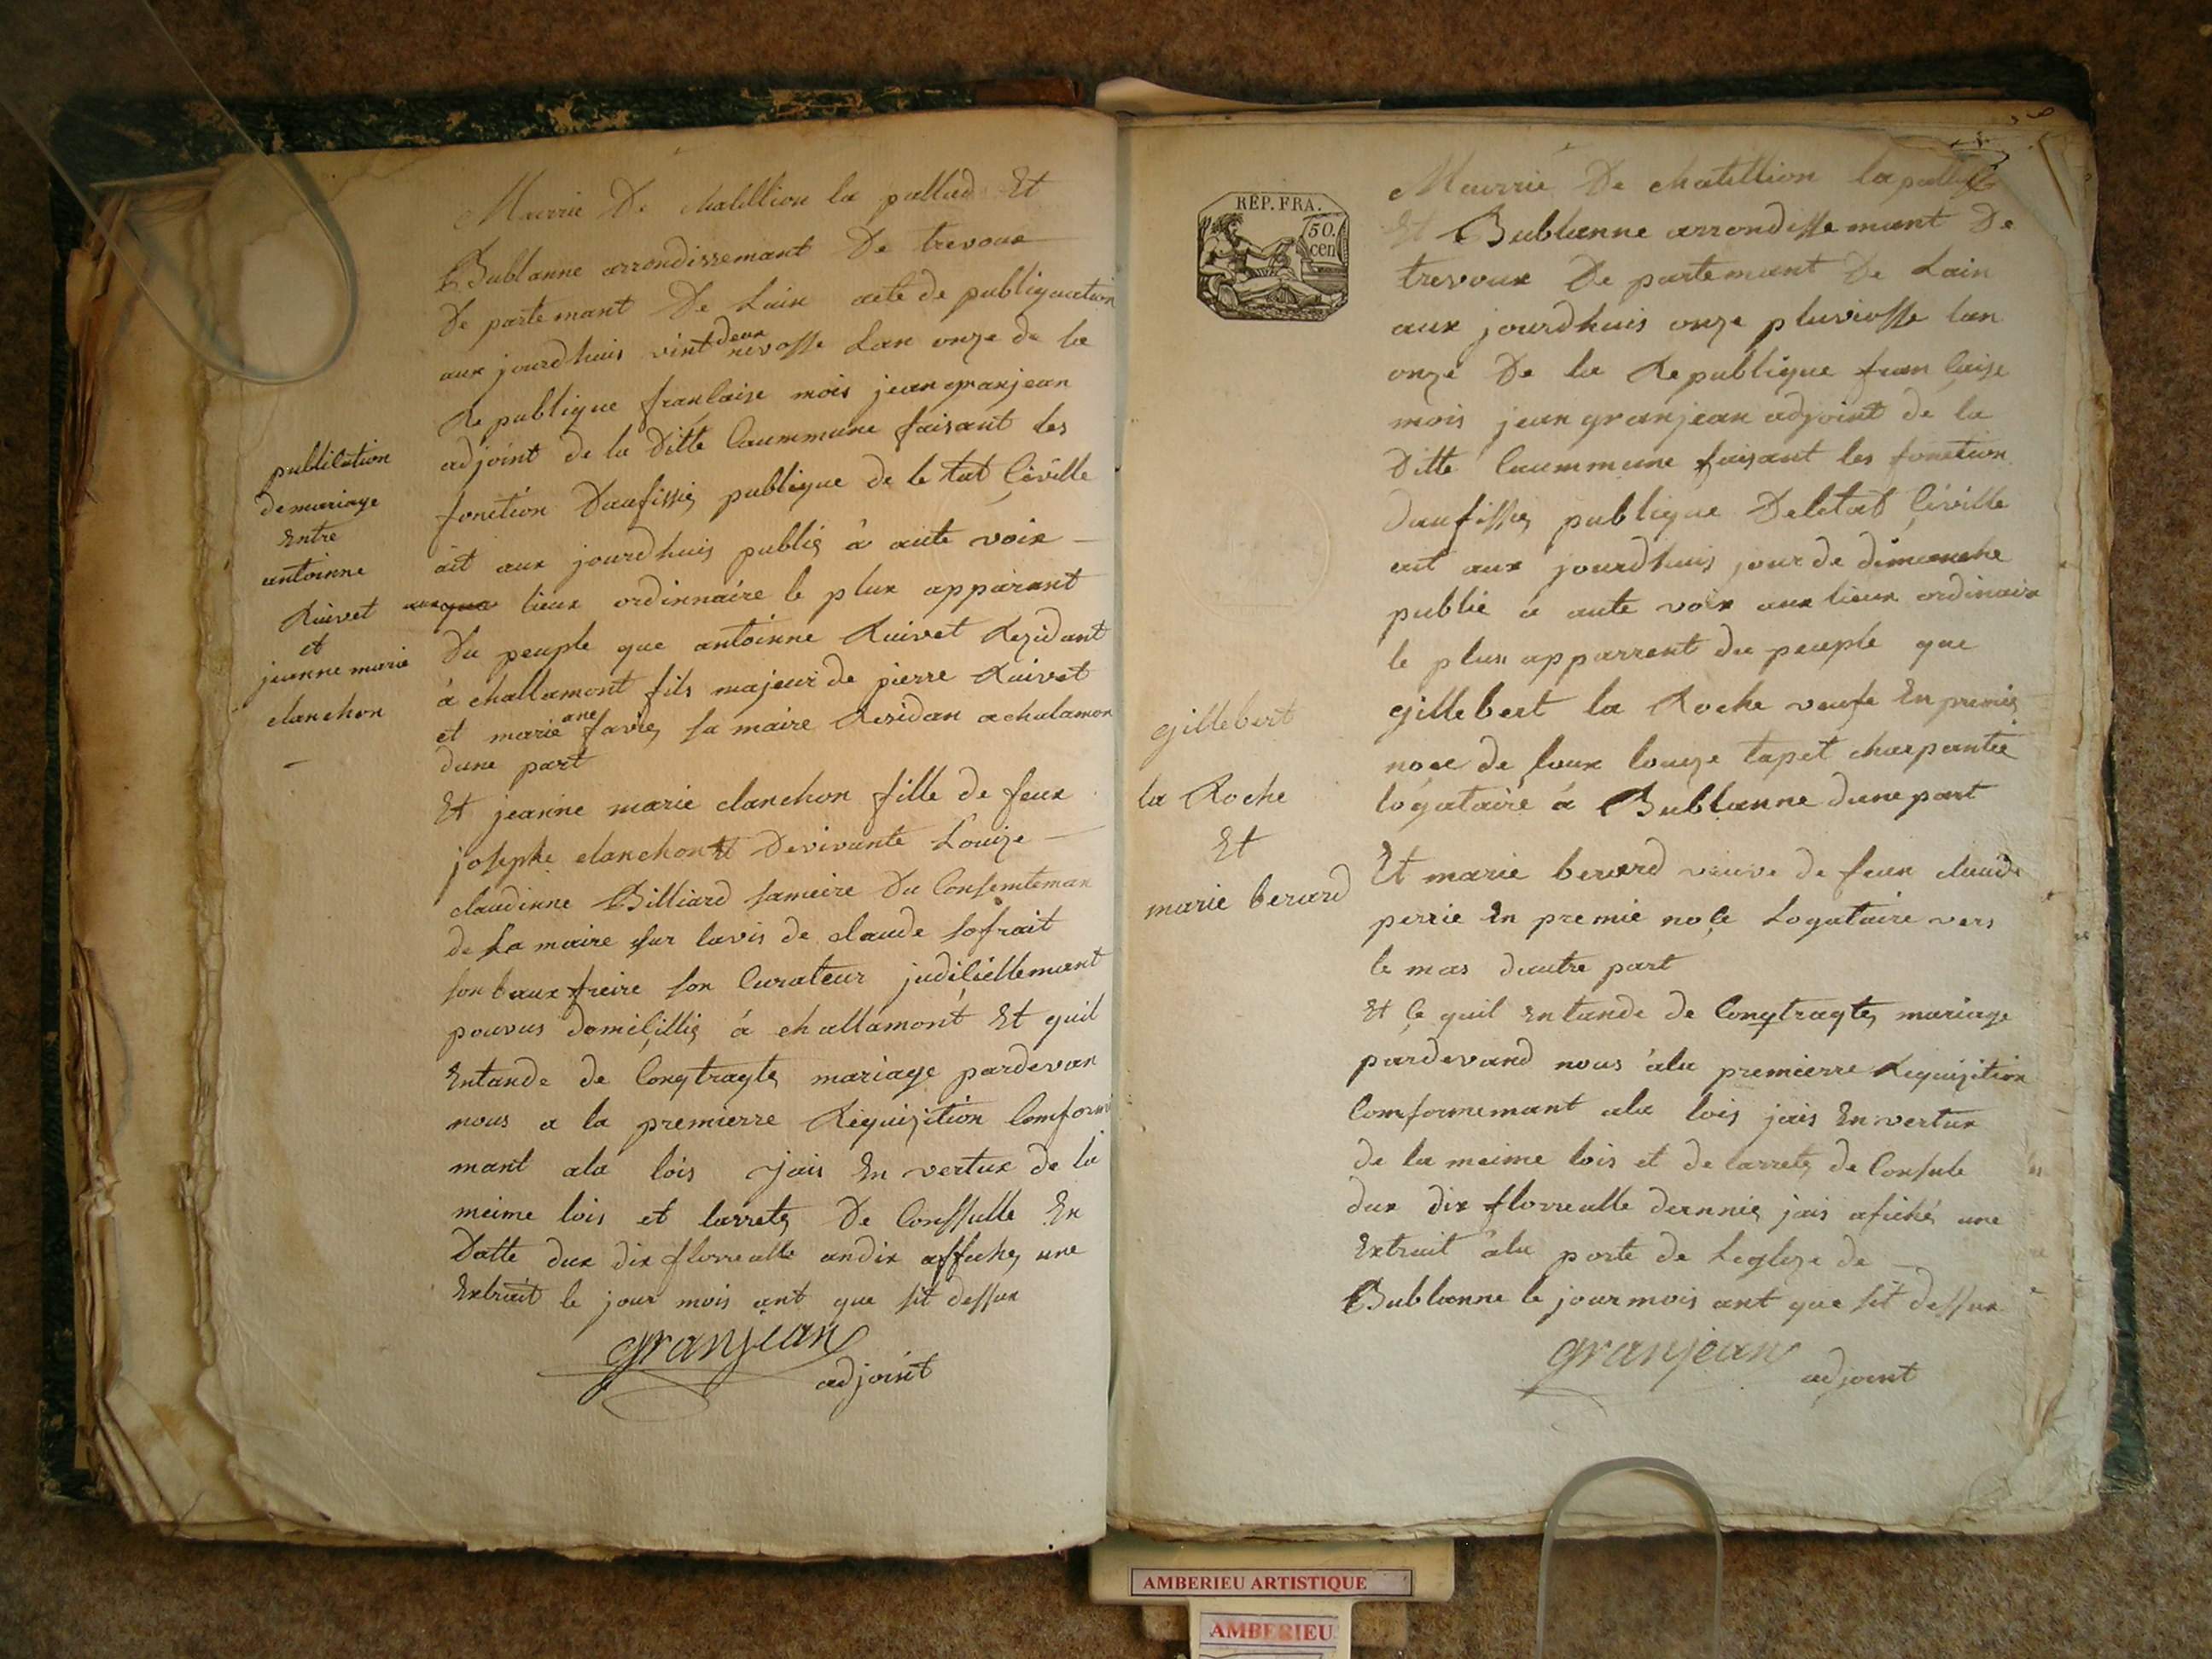 Mairrie De chatillion la pallud Et
Bublanne arrondissemant De trevoux
De partemant De Lain acte de publiquation
aux jourdhuis vint deux nivosse Lan onze de la
Republique francaise mois jean granjean
adjoint de la Ditte Caummune faisant les
fonction Daufissiez publique de le tat Civille
ait aux jourdhuis publiez à aute voix
aux lieux ordinnaire le plux apparant
Du peuple que antoinne Ruivet Rezidant
à challamont fils majeur de pierre Ruivet
et marie ane favrez sa maire Residan a chalamon
dune part
Et jeanne marie clanchon fille de feux
josephe clanchon Et Devivante Louize
claudinne Billiard sameire Du Consenteman
de La maire sur lavis de claude sofrait
son baux freire son Curateur judiciellemant
pouvus domicilliez à challamont Et quil
Entande de Congtragtez mariage pardevan
nous a la premierre Requizition Comformé
mant ala lois Jais En vertux de la
meime lois et larretez De Conssulle En
Datte dux dix florrealle andix affichez une
Extrait le jour mois ant que sit dessux
granjean
adjoint
publication
de mariage
Entre
antoinne
Ruivet
et
jeanne marie
clanchon
REP. FRA.
50.
cen
Mairrie De chatillion la pallud
Et Bublanne arrondissemant De
trevoux De partemant De Lain
aux jourdhuis onze pluviosse lan
onze De la Republique francaise
mois jean granjean adjoint de la
Ditte Caummune faisant les fonction
Daufissiez publique Deletat Civille
ait aux jourdhuis jour de dimanche
publie a aute voix aux lieux ordinaire
le plux apparrent du peuple que
gillebert la Roche veufe En premiez
noce de Louize tapet charpantie
logataire à Bublanne dune part
Et marie berard veuve de feux claude
perrie En premie noce Logataire vers
le mas dautre part
Et ce quil Entande de Congtragtez mariage
pardevand nous àla premierre Requizition
Comformemant ala lois jais En vertux
de la meime lois et de larretez de Consule
dux dix florrealle dernniez jais afiché une
Extrait àla porte de Leglize de
Bublanne le jour mois ant que sit dessux
granjean
adjoint
gillebert
la Roche
Et
marie berard
AMBERIEU ARTISTIQUE
AMBERIEU